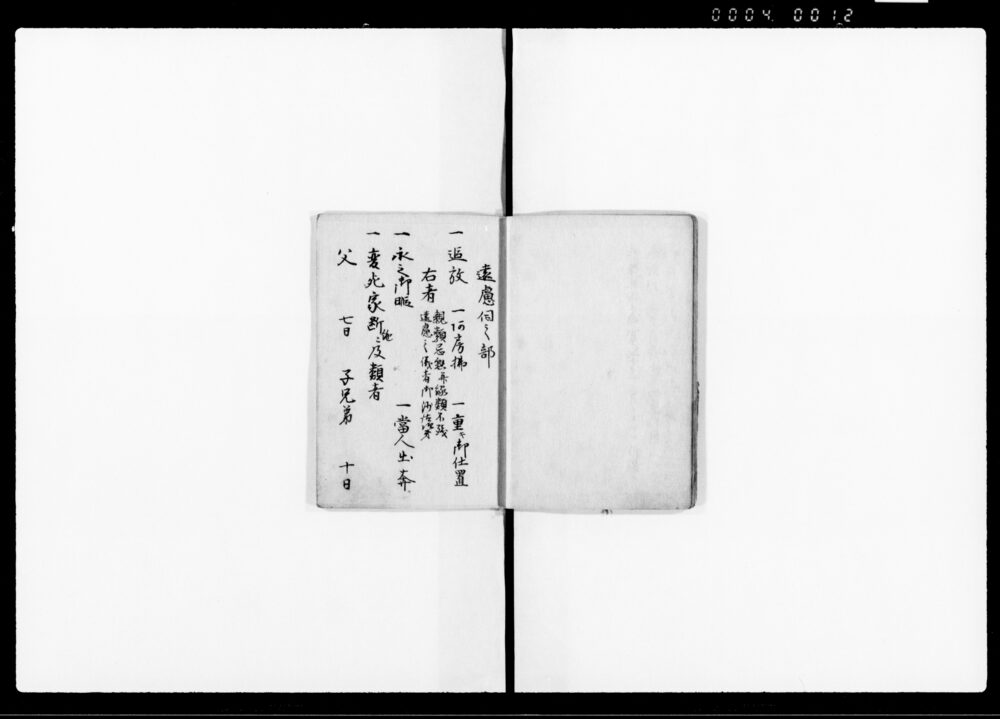 0004 0012
遠慮伺之部
一 追放 一 阿房拂 一 重キ御仕置
右者 親類忌懸并縁類不残
遠慮之儀者御沙汰
一 永之御暇 一 當人出奔
一 変死家断絶ニ及類者
父 七日 子兄弟 十日